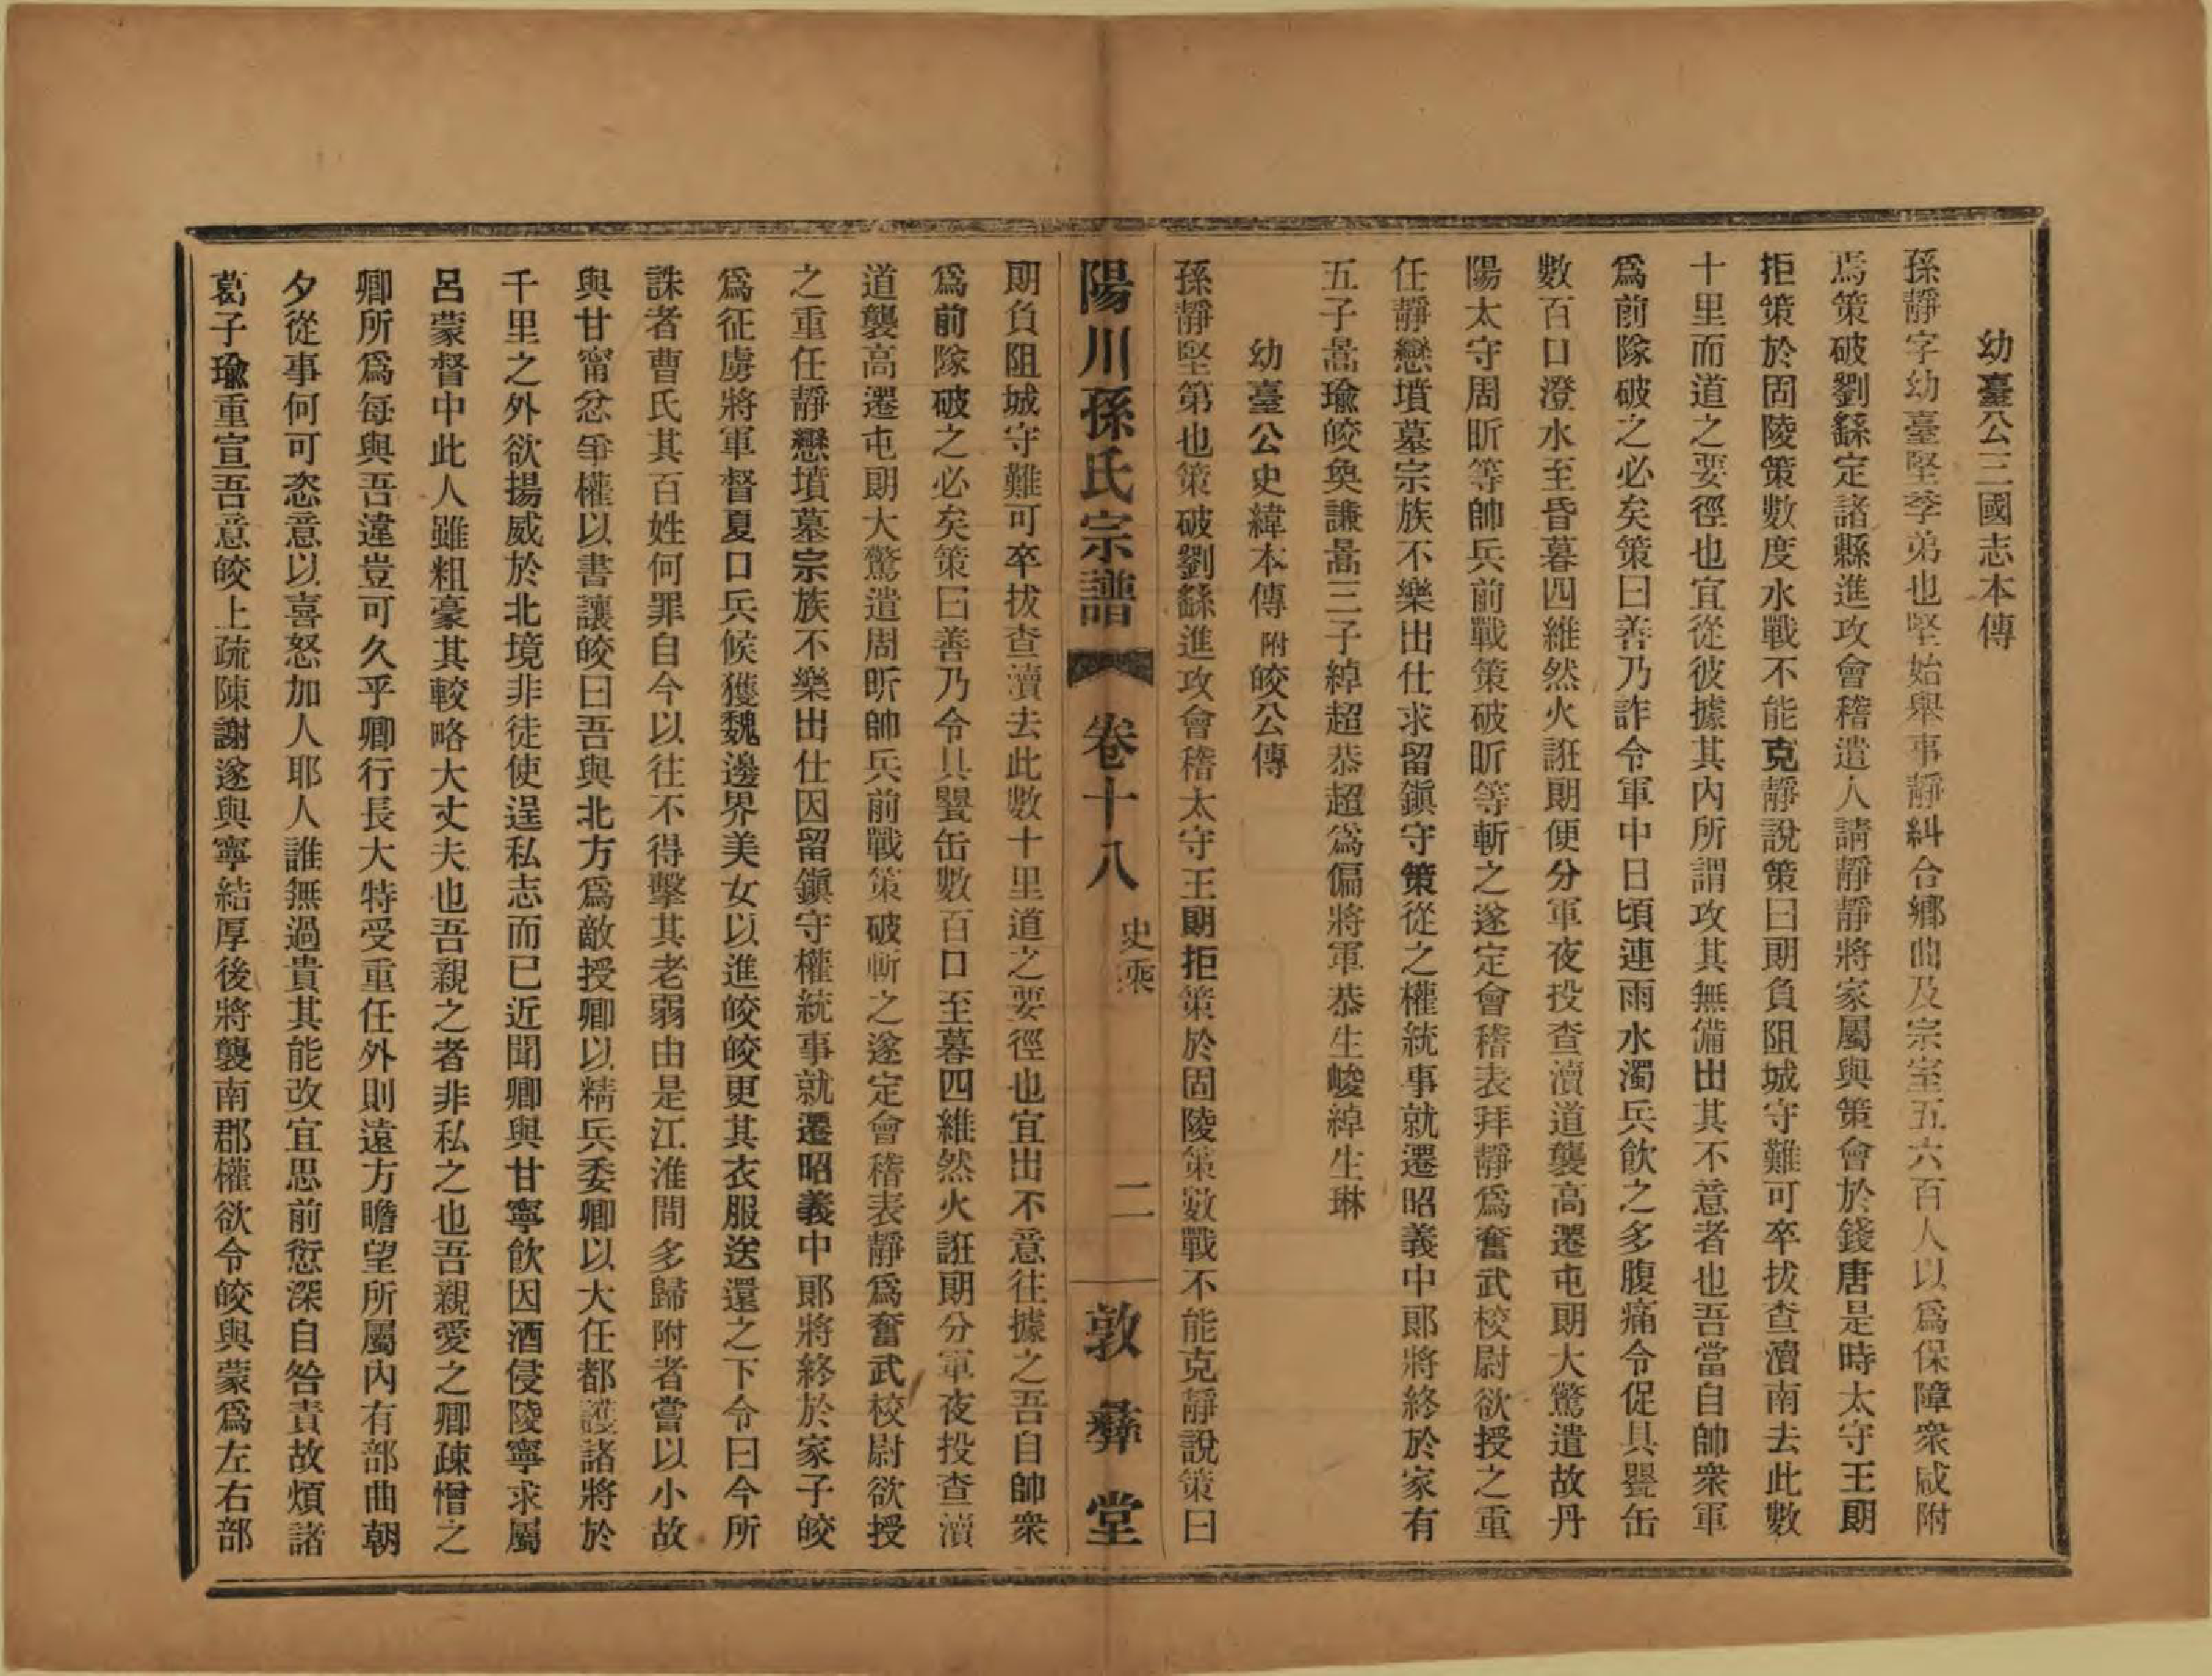 幼臺公三國志本傳
孫靜字幼臺堅季弟也堅始舉事靜糾合鄉曲及宗室五六百人以爲保障衆咸附
焉策破劉繇定諸縣進攻會稽遣人請靜靜將家屬與策會於錢唐是時太守王朗
拒策於固陵策數度水戰不能克靜說策曰朗負阻城守難可卒拔查瀆南去此數
十里而道之要徑也宜從彼據其內所謂攻其無備出其不意者也吾當自帥衆軍
爲前隊破之必矣策曰善乃詐令軍中日頃連雨水濁兵飲之多腹痛令促具甖缶
數百口澄水至昏暮四維然火誑朗便分軍夜投查瀆道襲高遷屯朗大驚遣故丹
陽太守周昕等帥兵前戰策破昕等斬之遂定會稽表拜靜爲奮武校尉欲授之重
任靜戀墳墓宗族不樂出仕求留鎮守策從之權統事就遷昭義中郎將終於家有
五子暠瑜皎奐謙暠三子綽超恭超爲偏將軍恭生峻綽生琳
幼臺公史緯本傳 附皎公傳
孫靜堅第也策破劉繇進攻會稽太守王朗拒策於固陵策數戰不能克靜說策曰
陽川孫氏宗譜 卷十八 史乘 二 敦彝堂
朗負阻城守難可卒拔查瀆去此數十里道之要徑也宜出不意往據之吾自帥衆
爲前隊破之必矣策曰善乃令具甖缶數百口至暮四維然火誑朗分軍夜投查瀆
道襲高遷屯朗大驚遣周昕帥兵前戰策破斬之遂定會稽表靜爲奮武校尉欲授
之重任靜戀墳墓宗族不樂出仕因留鎮守權統事就遷昭義中郎將終於家子皎
爲征虜將軍督夏口兵候獲魏邊界美女以進皎皎更其衣服送還之下令曰今所
誅者曹氏其百姓何罪自今以往不得擊其老弱由是江淮間多歸附者嘗以小故
與甘甯忿爭權以書讓皎曰吾與北方爲敵授卿以精兵委卿以大任都護諸將於
千里之外欲揚威於北境非徒使逞私志而已近聞卿與甘寧飲因酒侵陵寧求屬
呂蒙督中此人雖粗豪其較略大丈夫也吾親之者非私之也吾親愛之卿疎憎之
卿所爲每與吾違豈可久乎卿行長大特受重任外則遠方瞻望所屬內有部曲朝
夕從事何可恣意以喜怒加人耶人誰無過貴其能改宜思前愆深自咎責故煩諸
葛子瑜重宣吾意皎上疏陳謝遂與寧結厚後將襲南郡權欲令皎與蒙爲左右部